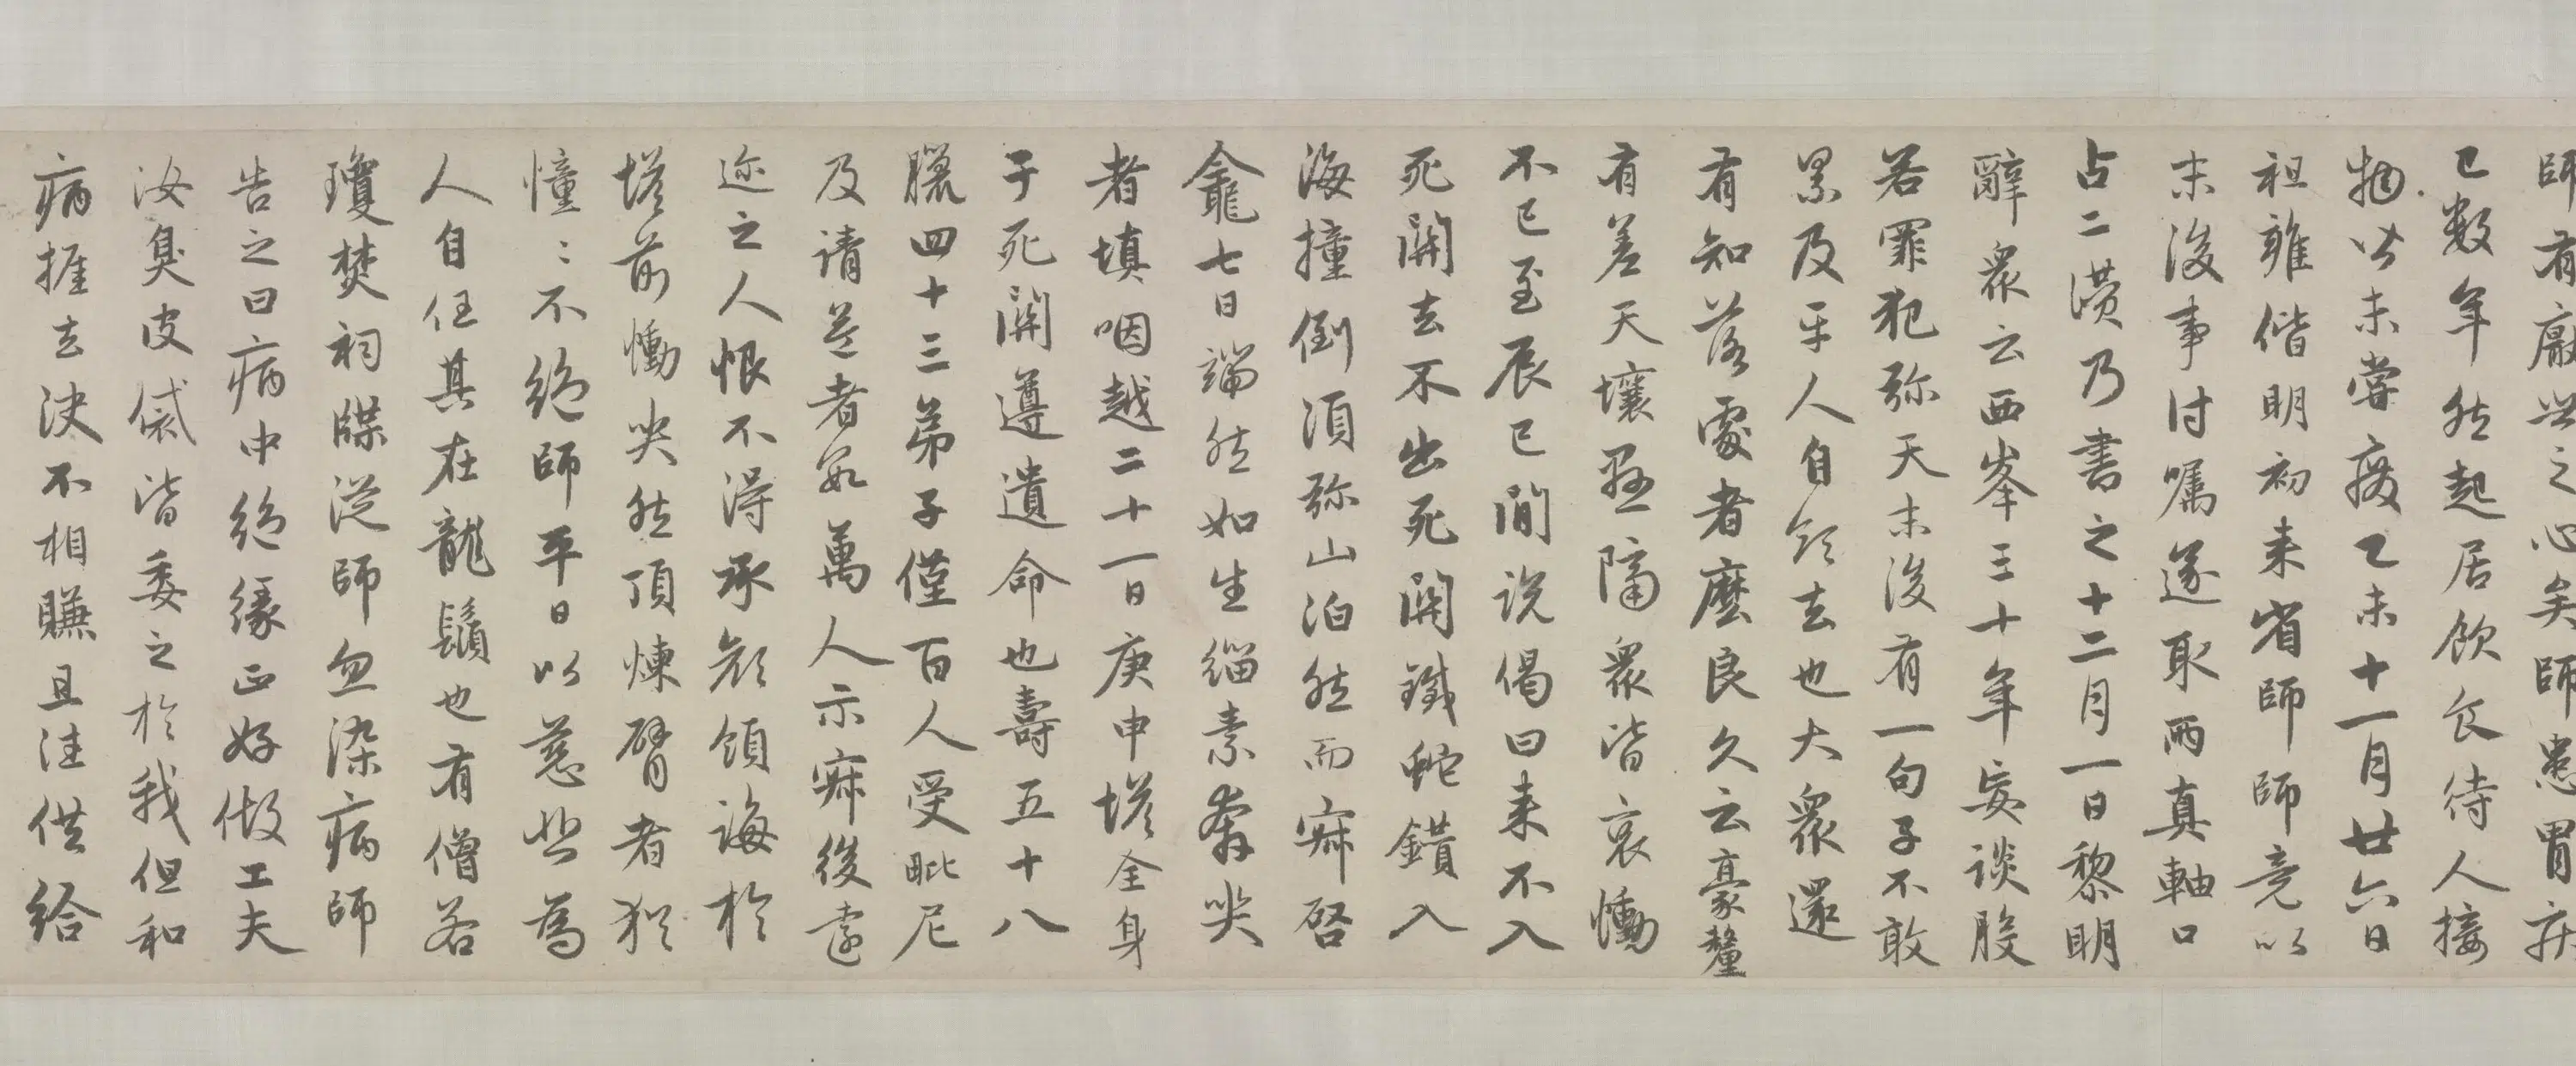 師有厭世之心矣師患胃疾
已數年然起居飲食待人接
物皆未嘗廢乙未十一月廿六日
祖雍偕明初來省師師竟以
末後事付囑遂取兩真軸口
占二讚乃書之十二月一日黎明
辭眾云西峯三十年妄談般
若罪犯弥天末後有一句子不敢
累及平人自領去也大眾還
有知落處者麼良久云豪釐
有差天壤懸隔眾皆哀慟
不已至辰巳間說偈曰來不入
死關去不出死關鐵蛇鑽入
海撞倒須弥山泊然而寂啓
龕七日端然如生緇素奔哭
者填咽越二十一日庚申塔全身
于死關遵遺命也壽五十八
臘四十三弟子僅百人受毗尼
及請益者數萬人示寂後遠
迩之人恨不得承顏領誨於
塔前慟哭然頂煉臂者猶
憧〻不絕師平日以慈悲為
人自任其在龍鬚也有僧若
瓊焚祠牒從師忽染病師
告之曰病中絕緣正好做工夫
汝臭皮袋皆委之於我但和
病捱去決不相賺且注供給